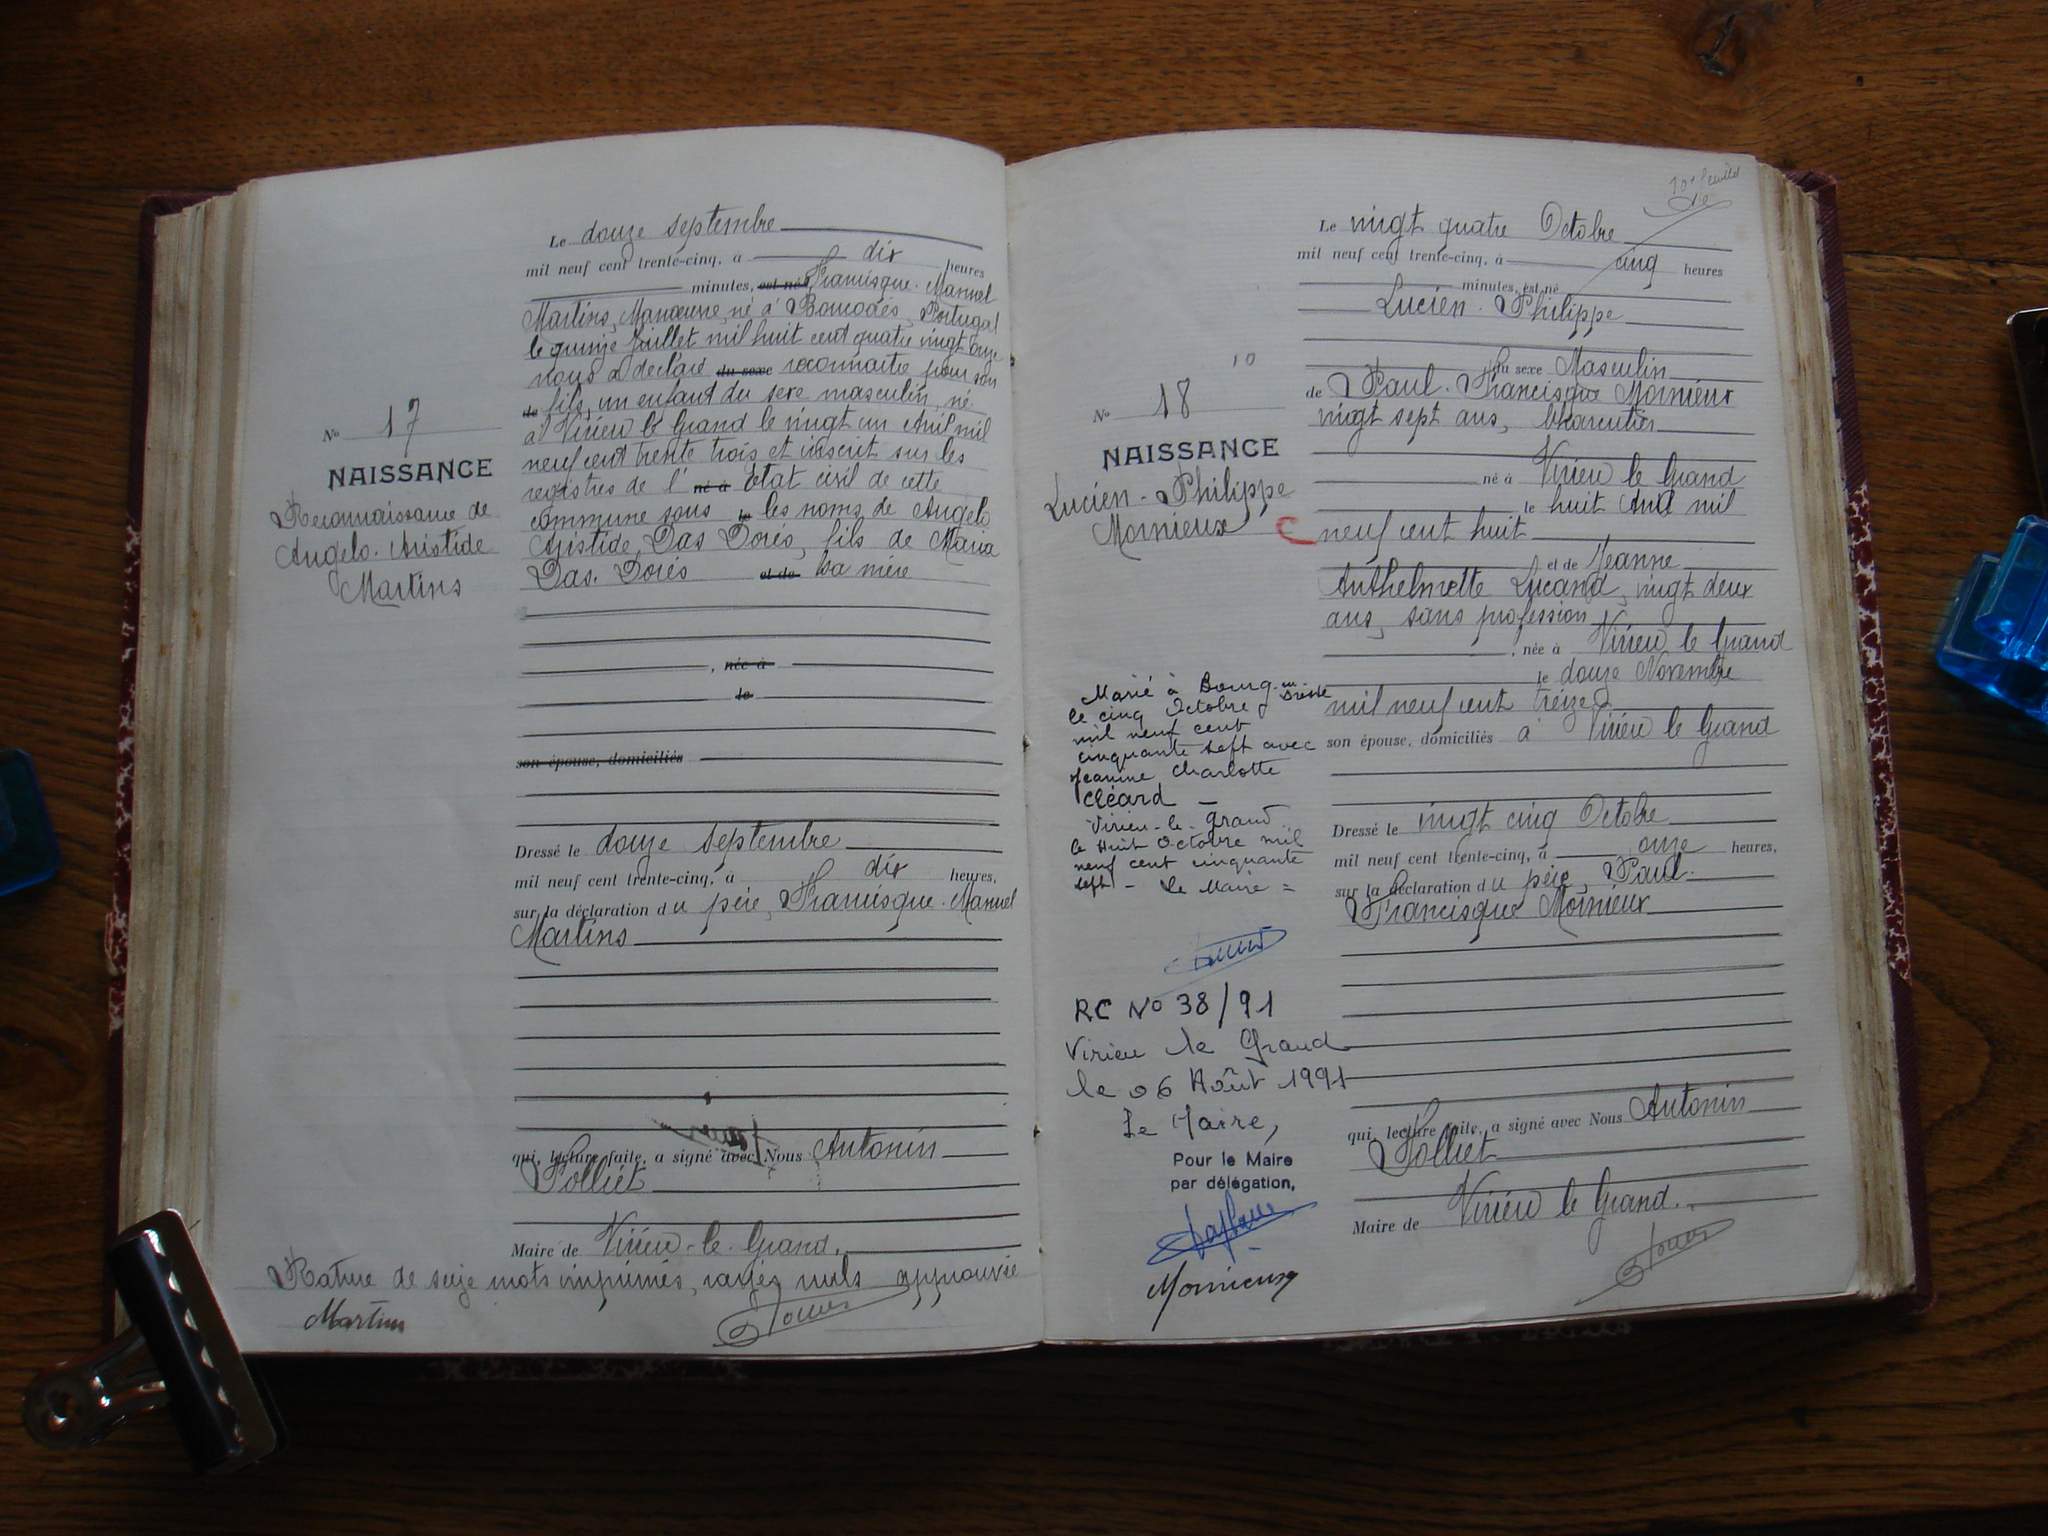 Le douze septembre
mil neuf cent trente-cinq, à dix heures
minutes, est né Francisque. Manuel
Martins, Manœuvre, né à Portugal
le quinze Juillet mil huit cent quatre vingt onze
nous a déclaré du sexe reconnaitre pour son
de fils, un enfant du sexe masculin, né
à Virieu le Grand le vingt un Avril mil
neuf cent trente trois et inscrit sur les
registres de l' né à Etat civil de cette
commune sous le les noms de Angelo
Aristide, Das Dorés, fils de Maria
Das. Dorés et de sa mère
, née à
le
son épouse, domiciliés
Dressé le douze septembre
mil neuf cent trente-cinq, à dix heures,
sur la déclaration du père, Francisque. Manuel
Martins
qui, lecture faite, a signé avec Nous Antonin
Folliet
Maire de Virieu-le-Grand.
Rature de seize mots imprimés, rayés nuls approuvée
Martins
No 17
NAISSANCE
Reconnaissance de
Angelo. Aristide
Martins
Le vingt quatre Octobre
mil neuf cent trente-cinq, à cinq heures
minutes, est né
Lucien. Philippe
du sexe Masculin
de Paul. Francisque Mornieux
vingt sept ans, Charcutier
né à Virieu le Grand
le huit Août mil
neuf cent huit
et de Jeanne
Anthelmette Lucand, vingt deux
ans, sans profession
, née à Virieu le Grand
le douze Novembre
mil neuf cent treize
son épouse, domiciliés à Virieu le Grand
Dressé le vingt cinq Octobre
mil neuf cent trente-cinq, à onze heures,
sur la déclaration du père, Paul.
Francisque Mornieux
qui, lecture faite, a signé avec Nous Antonin
Folliet
Maire de Virieu le Grand.
10
No 18
NAISSANCE
Lucien-Philippe
Mornieux
Marié à Bourg-en-Bresse
le cinq Octobre
mil neuf cent
cinquante sept avec
Jeanine Charlotte
Cléard –
Virieu-le-Grand
le Huit Octobre mil
neuf cent cinquante
sept – Le Maire =
RC No 38/91
Virieu le Grand
le 06 Août 1991
Le Maire,
Pour le Maire
par délégation,
Mornieux